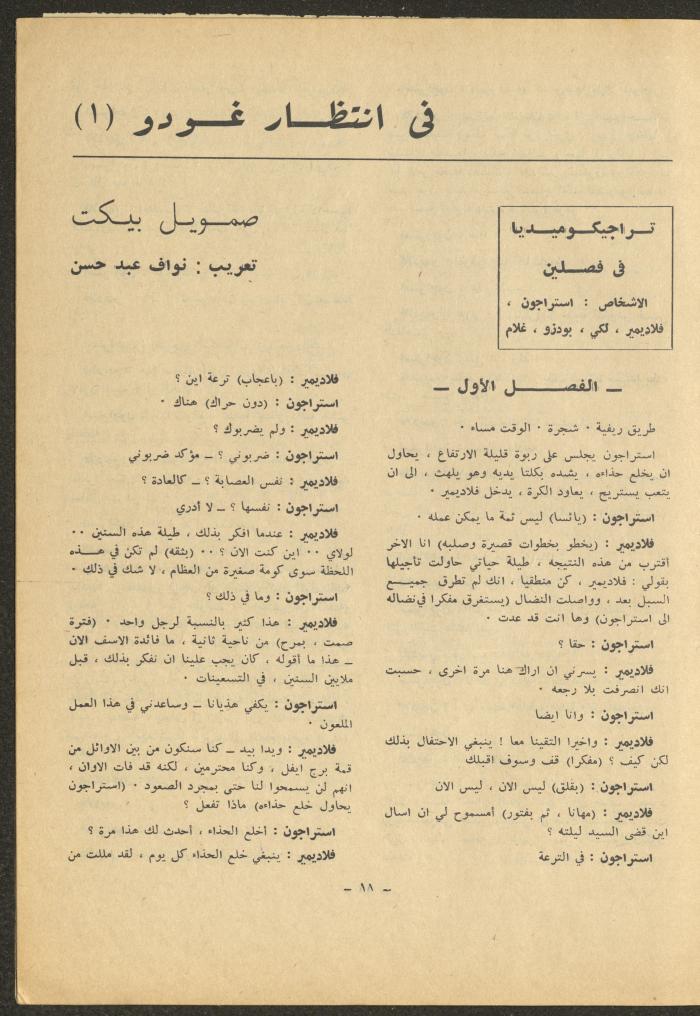 فى انتظــار غــودو (١)
صمـويـل بيـكت
تعريب : نواف عبد حسن
تـراجيكـوميـديا
فى فصـلين
الاشخاص : استراجون ،
فلاديمير ، لكي ، بودزو ، غلام
ــ الفصــل الأول ــ
طريق ريفية ٠ شجرة ٠ الوقت مساء ٠
استراجون يجلس على ربوة قليلة الارتفاع ، يحاول
ان يخلع حذاءه ، يشده بكلتا يديه وهو يلهث ، الى ان
يتعب يستريح ، يعاود الكرة ، يدخل فلاديمير ٠
استراجون : (يائسا) ليس ثمة ما يمكن عمله ٠
فلاديمير : (يخطو بخطوات قصيرة وصلبه) انا الاخر
أقترب من هذه النتيجه ، طيلة حياتي حاولت تأجيلها
بقولي : فلاديمير ، كن منطقيا ، انك لم تطرق جميـــع
السبل بعد ، وواصلت النضال (يستغرق مفكرا في نضاله
الى استراجون) وها انت قد عدت ٠
استراجون : حقا ؟
فلاديمير : يسرني ان اراك هنا مرة اخرى ، حسبت
انك انصرفت بلا رجعه ٠
استراجون : وانا ايضا
فلاديمير : واخيرا التقينا معا ! ينبغي الاحتفال بذلك
لكن كيف ؟ (مفكرا) قف وسوف اقبلك
استراجون : (بقلق) ليس الان ، ليس الان
فلاديمير : (مهانا ، ثم بفتور) أمسموح لي ان اسال
اين قضى السيد ليلته ؟
استراجون : في الترعة
فلاديمير : (باعجاب) ترعة اين ؟
استراجون : (دون حراك) هناك ٠
فلاديمير : ولم يضربوك ؟
استراجون : ضربوني ؟ ــ مؤكد ضربوني
فلاديمير : نفس العصابة ؟ ــ كالعادة ؟
استراجون : نفسها ؟ ــ لا أدري
فلاديمير : عندما افكر بذلك ، طيلة هذه السنين ٠٠
لولاي ٠٠ اين كنت الان ؟ ٠٠ (بثقه) لم تكن في هـــذه
اللحظة سوى كومة صغيرة من العظام ، لا شك في ذلك ٠
استراجون : وما في ذلك ؟
فلاديمير : هذا كثير بالنسبة لرجل واحد ٠ (فترة
صمت ، بمرح) من ناحية ثانية ، ما فائدة الاسف الان
ــ هذا ما أقوله ، كان يجب علينا ان نفكر بذلك ، قبل
ملايين السنين ، في التسعينات ٠
استراجون : يكفي هذيانا ــ وساعدني في هذا العمل
الملعون ٠
فلاديمير : ويدا بيد ــ كنا سنكون من بين الاوائل من
قمة برج ايفل ، وكنا محترمين ، لكنه قد فات الاوان ،
انهم لن يسمحوا لنا حتى بمجرد الصعود ٠ (استراجون
يحاول خلع حذاءه) ماذا تفعل ؟
استراجون : أخلع الحذاء ، أحدث لك هذا مرة ؟
فلاديمير : ينبغي خلع الحذاء كل يوم ، لقد مللت من
ــ ١٨ ــ